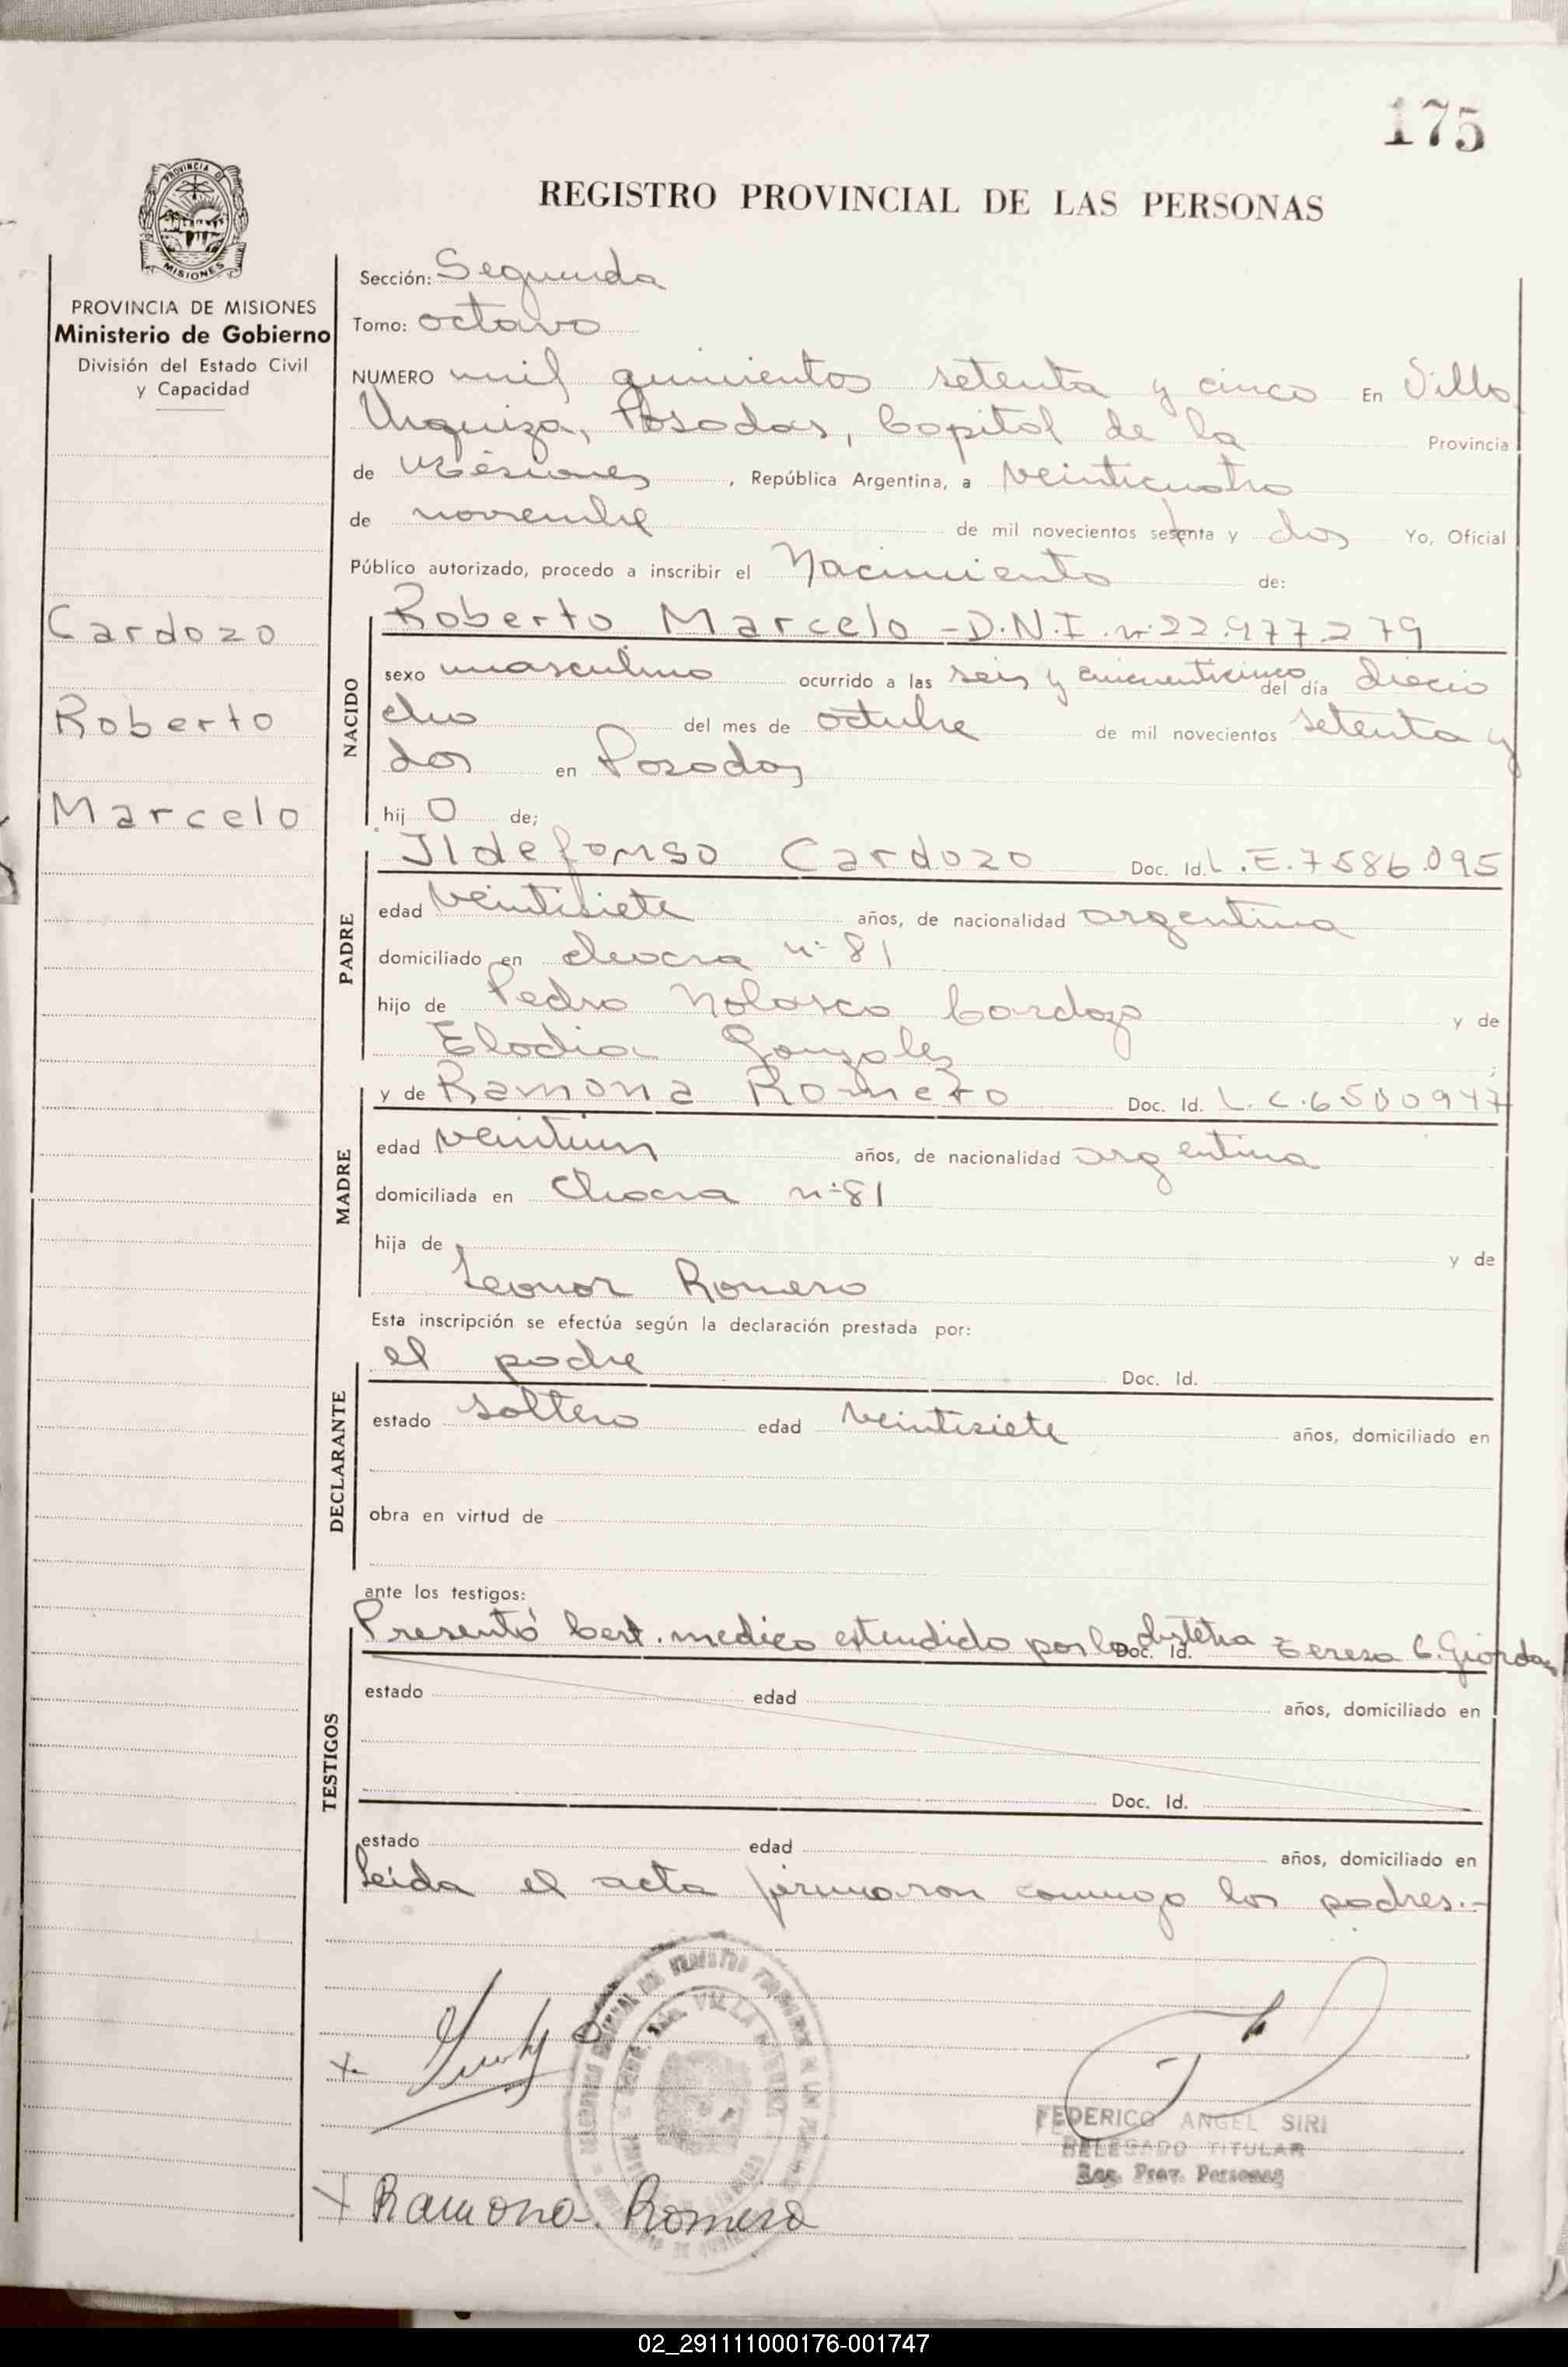 175
PROVINCIA DE
MISIONES
REGISTRO PROVINCIAL DE LAS PERSONAS
PROVINCIA DE MISIONES
Ministerio de Gobierno
División del Estado Civil
y Capacidad
Cardozo
Roberto
Marcelo
Sección: Segunda
Tomo: octavo
NUMERO mil quinientos setenta y cinco En Villa
Urquiza, Posadas, Capital de la Provincia
de Misiones, República Argentina, a veinticuatro
de noviembre de mil novecientos setenta y dos Yo, Oficial
Público autorizado, procedo a inscribir el Nacimiento de:
NACIDO
Roberto Marcelo - D.N.I. nº 22.977.279
sexo masculino ocurrido a las seis y cincuenticinco del día diecio
cho del mes de octubre de mil novecientos setenta y
dos en Posadas
hij o de;
PADRE
Ildefonso Cardozo Doc. Id. L.E. 7.586.095
edad veintisiete años, de nacionalidad argentina
domiciliado en chacra nº 81
hijo de Pedro Nolasco Cardozo y de
Elodia Gonzalez ;
MADRE
y de Ramona Romero Doc. Id. L.C. 6500947
edad veintiun años, de nacionalidad argentina
domiciliada en Chacra nº 81
hija de y de
Leonor Romero
Esta inscripción se efectúa según la declaración prestada por:
DECLARANTE
el padre Doc. Id.
estado soltero edad veintisiete años, domiciliado en
obra en virtud de
ante los testigos:
TESTIGOS
Presentó Cert. medico extendido por la obstetra Teresa C. Giordan Doc. Id.
estado edad años, domiciliado en
Doc. Id.
estado edad años, domiciliado en
Leida el acta firmaron conmigo los padres.-
FEDERICO ANGEL SIRI
DELEGADO TITULAR
Reg. Prov. Personas
Ramona Romero
02_291111000176-001747